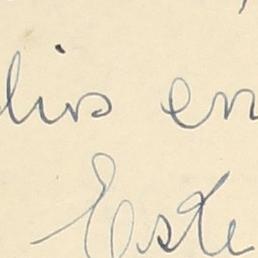 lis en
Este